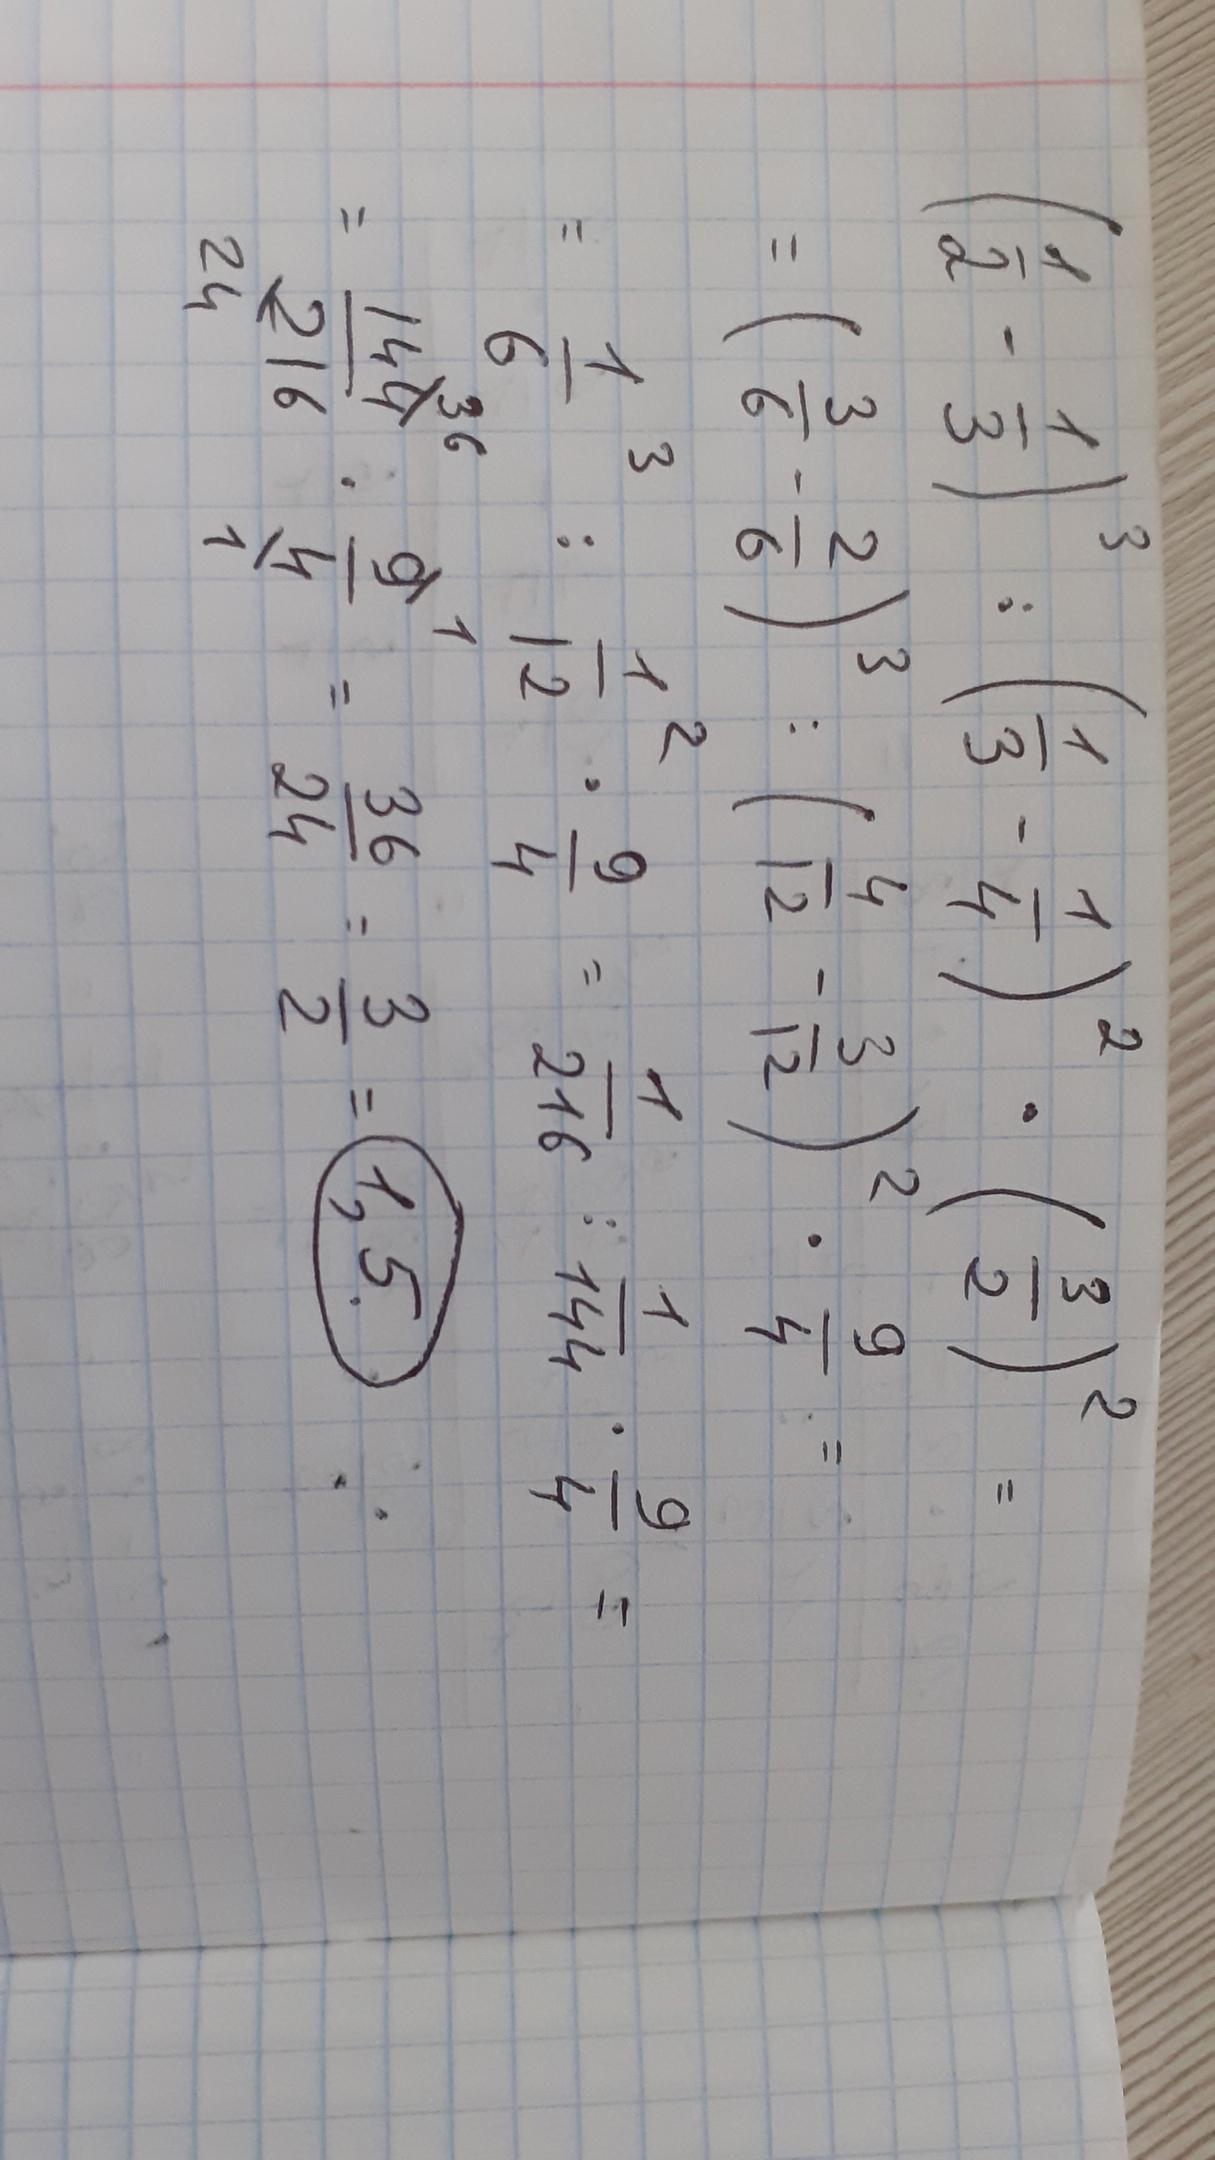 (1/2 - 1/3)³ : (1/3 - 1/4)² · (3/2)² =
= (3/6 - 2/6)³ : (4/12 - 3/12)² · 9/4 =
= 1/6³ : 1/12² · 9/4 = 1/216 : 1/144 · 9/4 =
= 144 36/216 24 · 9 1/4 1 = 36/24 = 3/2 = 1,5.